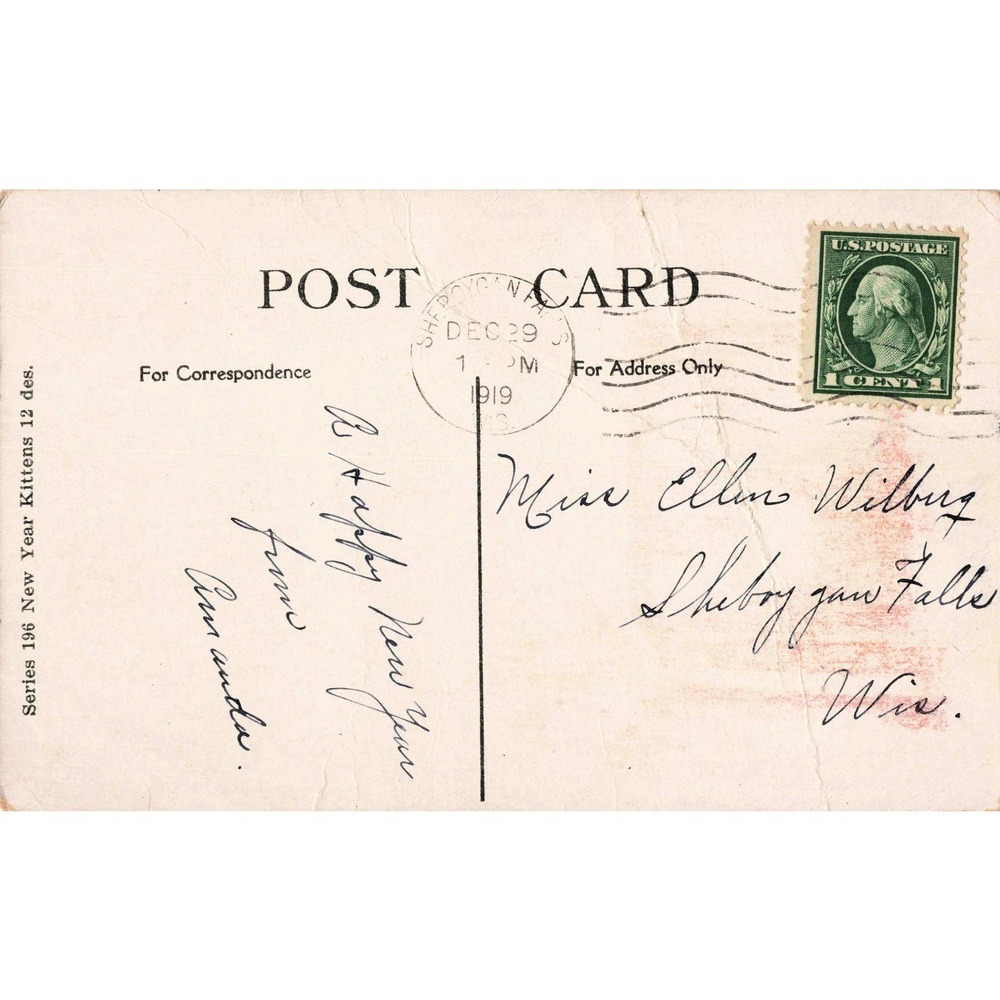 POST CARD
SHEBOYGAN FALLS
DEC 29
1 PM
1919
WIS.
U.S. POSTAGE
1 CENT 1
For Correspondence
For Address Only
Series 196 New Year Kittens 12 des.
A Happy New Year
from
Amanda.
Miss Ellen Wilberg
Sheboygan Falls
Wis.